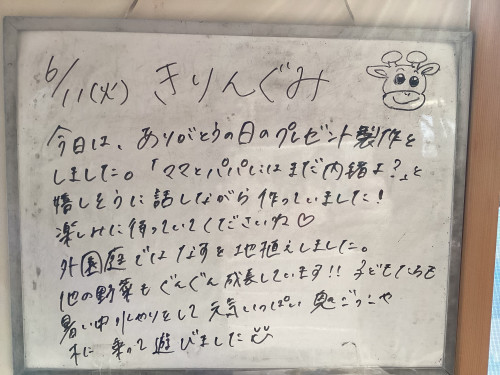 6/11(火) きりんぐみ
今日は、ありがとうの日のプレゼント製作を
しました。「ママとパパにはまだ内緒よ?」と
嬉しそうに話しながら作っていました!
楽しみに待っていてくださいね♡
外園庭ではなすを地植えしました。
他の野菜もぐんぐん成長しています!! 子どもたちも
暑い中水やりをして元気いっぱい鬼ごっこや
木に乗って遊びました